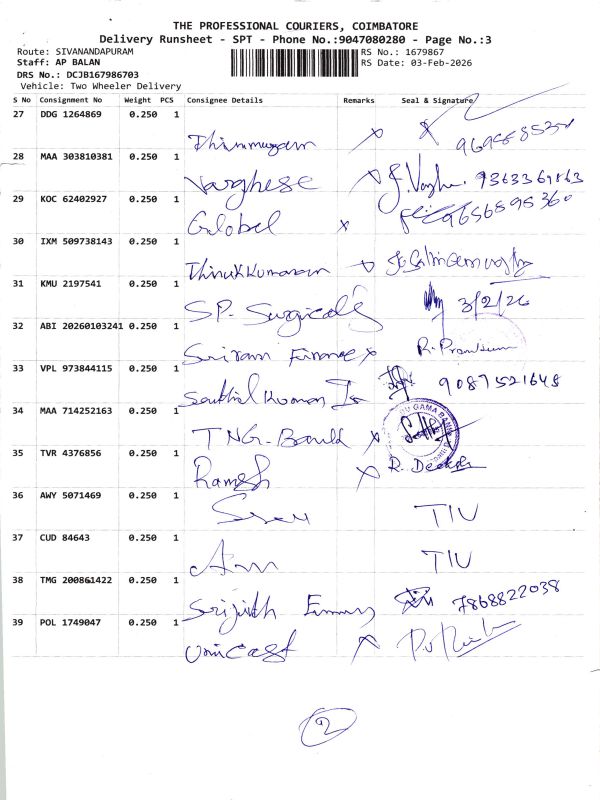 THE PROFESSIONAL COURIERS, COIMBATORE
Delivery Runsheet - SPT - Phone No.:9047080280 - Page No.:3
Route: SIVANANDAPURAM
RS No.: 1679867
Staff: AP BALAN
RS Date: 03-Feb-2026
DRS No.: DCJB167986703
Vehicle: Two Wheeler Delivery
S No Consignment No Weight PCS Consignee Details Remarks Seal & Signature
27 DDG 1264869 0.250 1
28 MAA 303810381 0.250 1
Varghese 9363369863
29 KOC 62402927 0.250 1
Global 9656895360
30 IXM 509738143 0.250 1
Thirukkumaran
31 KMU 2197541 0.250 1
SP. Surgicals 3/2/26
32 ABI 20260103241 0.250 1
Sriram Finance
33 VPL 973844115 0.250 1
9087521648
34 MAA 714252163 0.250 1
TNG-Bank
35 TVR 4376856 0.250 1
Ramesh
36 AWY 5071469 0.250 1
TIU
37 CUD 84643 0.250 1
TIU
38 TMG 200861422 0.250 1
Srijith 7868822038
39 POL 1749047 0.250 1
Unicast
2